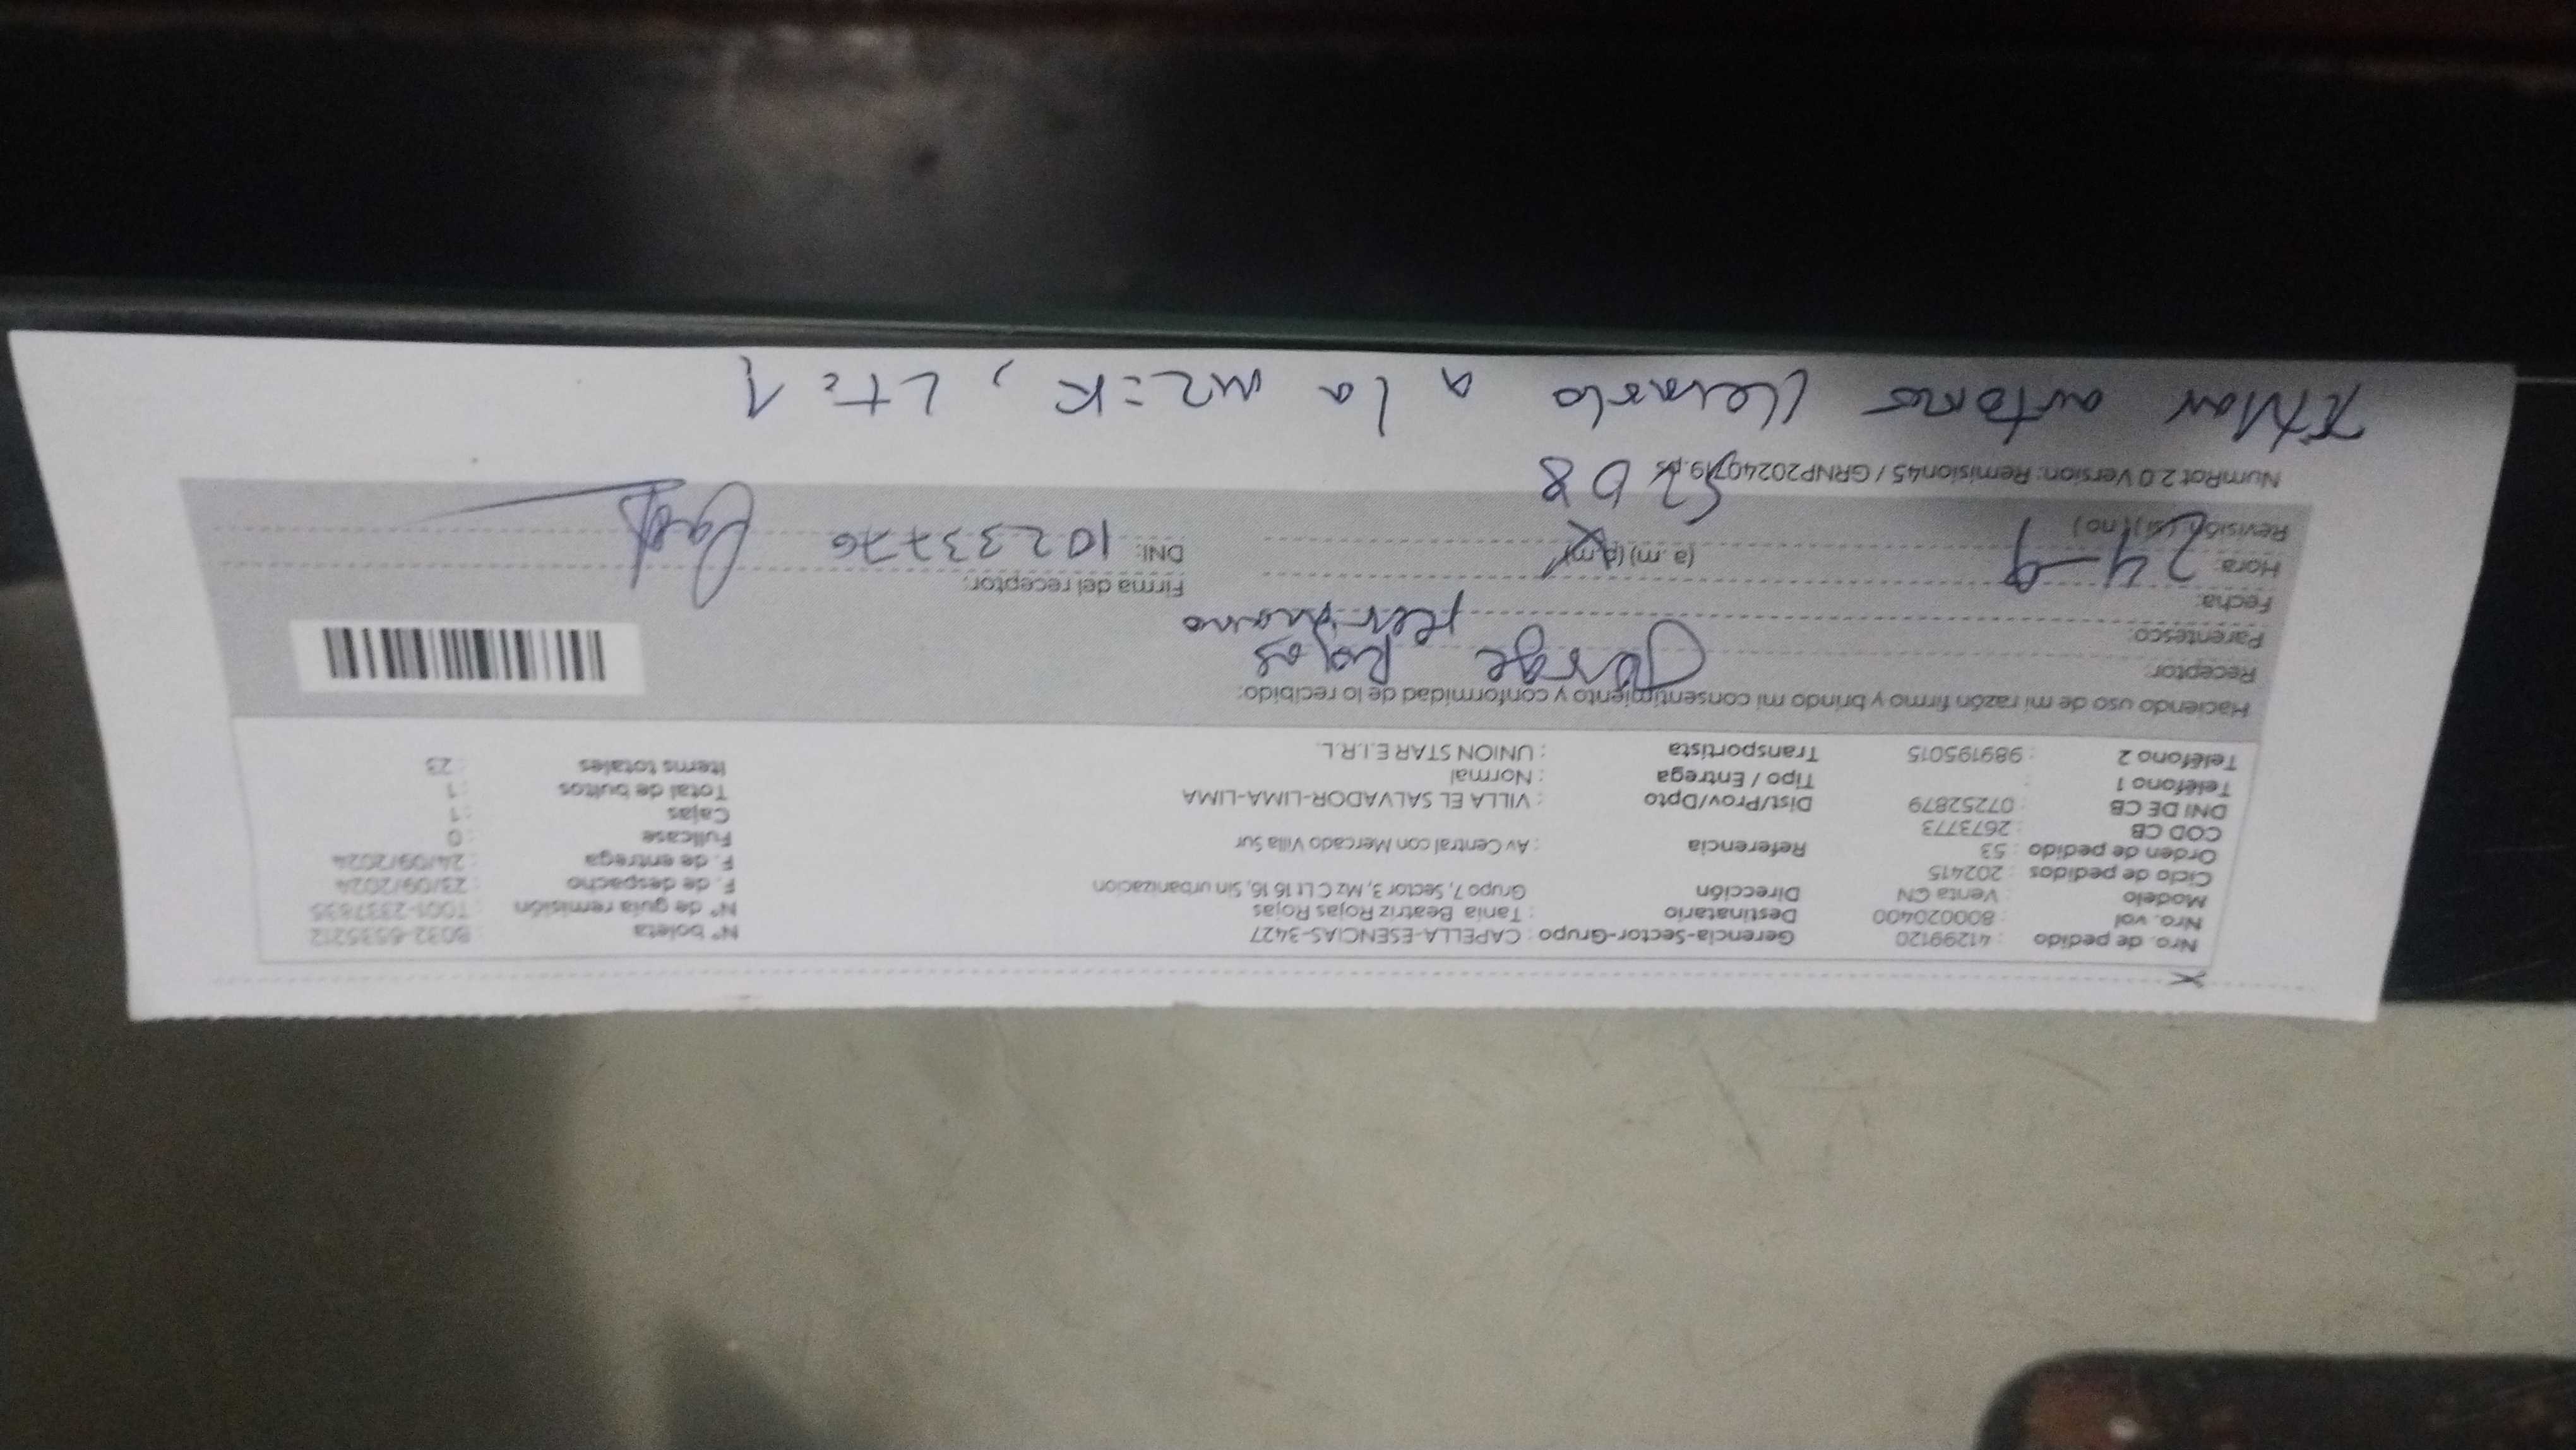 Nro. de pedido : 41299120 Gerencia-Sector-Grupo : CAPELLA-ESENCIAS-3427 N° boleta : B032-6535212
Nro. vol : 800020400 Destinatario : Tania Beatriz Rojas Rojas N° de guia remisión : T001-2337835
Modelo : Venta CN Dirección Grupo 7, Sector 3, Mz C Lt 16 16, Sin urbanizacion F. de despacho : 23/09/2024
Ciclo de pedidos : 202415 F. de entrega : 24/09/2024
Orden de pedido : 53 Referencia : Av Central con Mercado Villa Sur Fullcase : 0
COD CB : 2673773 Cajas : 1
DNI DE CB : 07252879 Dist/Prov/Dpto : VILLA EL SALVADOR-LIMA-LIMA Total de bultos : 1
Teléfono 1 : Tipo / Entrega : Normal Items totales : 23
Teléfono 2 : 989195015 Transportista : UNION STAR E.I.R.L.
Haciendo uso de mi razón firmo y brindo mi consentimiento y conformidad de lo recibido:
Receptor: Jorge Rojas
Parentesco: hermano
Fecha: 24-9 Firma del receptor:
Hora: (a.m) (p.m) DNI: 10233776
Revisión (si) (no)
NumRot 2.0 Version: Remision45 / GRNP20240719.ps
autorizo llevarlo a la MZ=K, LT=1